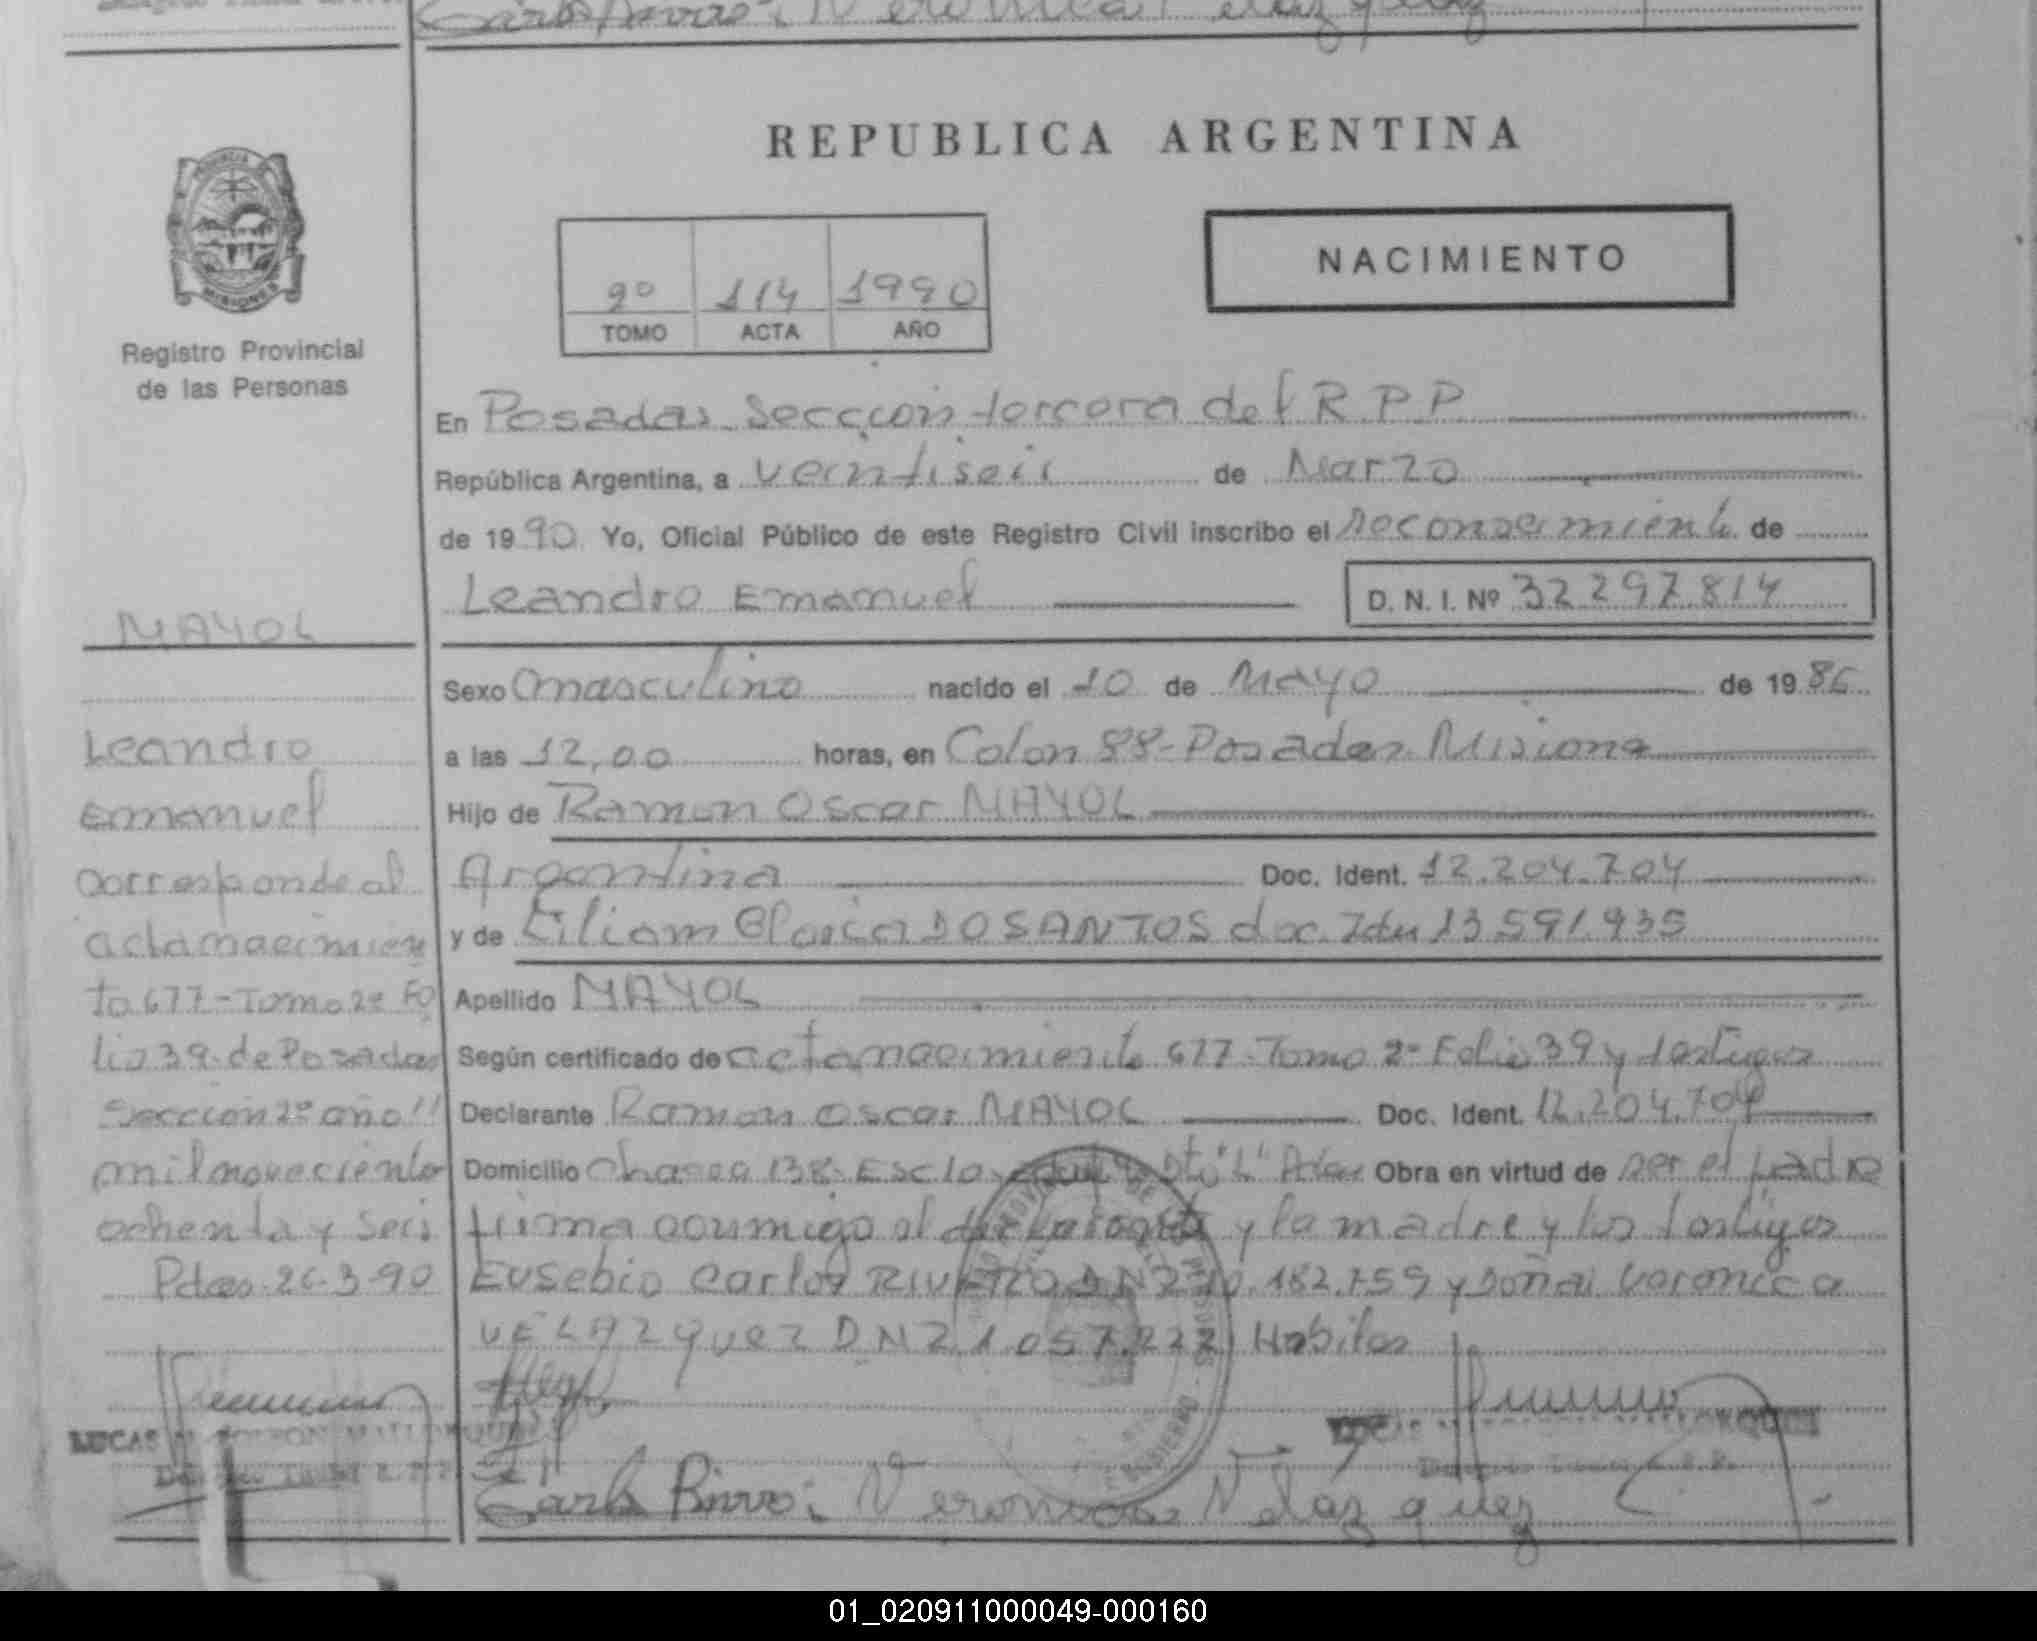 REPUBLICA ARGENTINA
PROVINCIA
MISIONES
Registro Provincial
de las Personas
NACIMIENTO
2º 114 1990
TOMO ACTA AÑO
En Posadas Sección tercera del R P P
República Argentina, a veintiseis de Marzo
de 1990 Yo, Oficial Público de este Registro Civil inscribo el reconocimiento de
Leandro Emanuel D. N. I. Nº 32297.814
Sexo masculino nacido el 10 de Mayo de 1986
a las 12,00 horas, en Colon 88-Posadas Misiones
Hijo de Ramon Oscar MAYOL
Argentina Doc. Ident. 12.204.704
y de Liliam Gloria DOSANTOS doc. Iden 13591.935
Apellido MAYOL
Según certificado de acta nacimiento 677-Tomo 2º Folio 39 y testigos
Declarante Ramon Oscar MAYOL Doc. Ident. 12.204.704
Domicilio Chacra 138 Obra en virtud de ser el padre
firma conmigo el declarante y la madre y los testigos
Eusebio Carlos RIVERO .182.759 y doña Veronica
VELAZQUEZ Habiles
Carlos Veronica Velazquez
MAYOL
Leandro
Emanuel
Corresponde al
acta nacimien
to 677-Tomo 2º Fo
lio 39-de Posadas
Sección 2º año
mil novecientos
ochenta y seis
Pdas-26-3-90
LUCAS
01_020911000049-000160